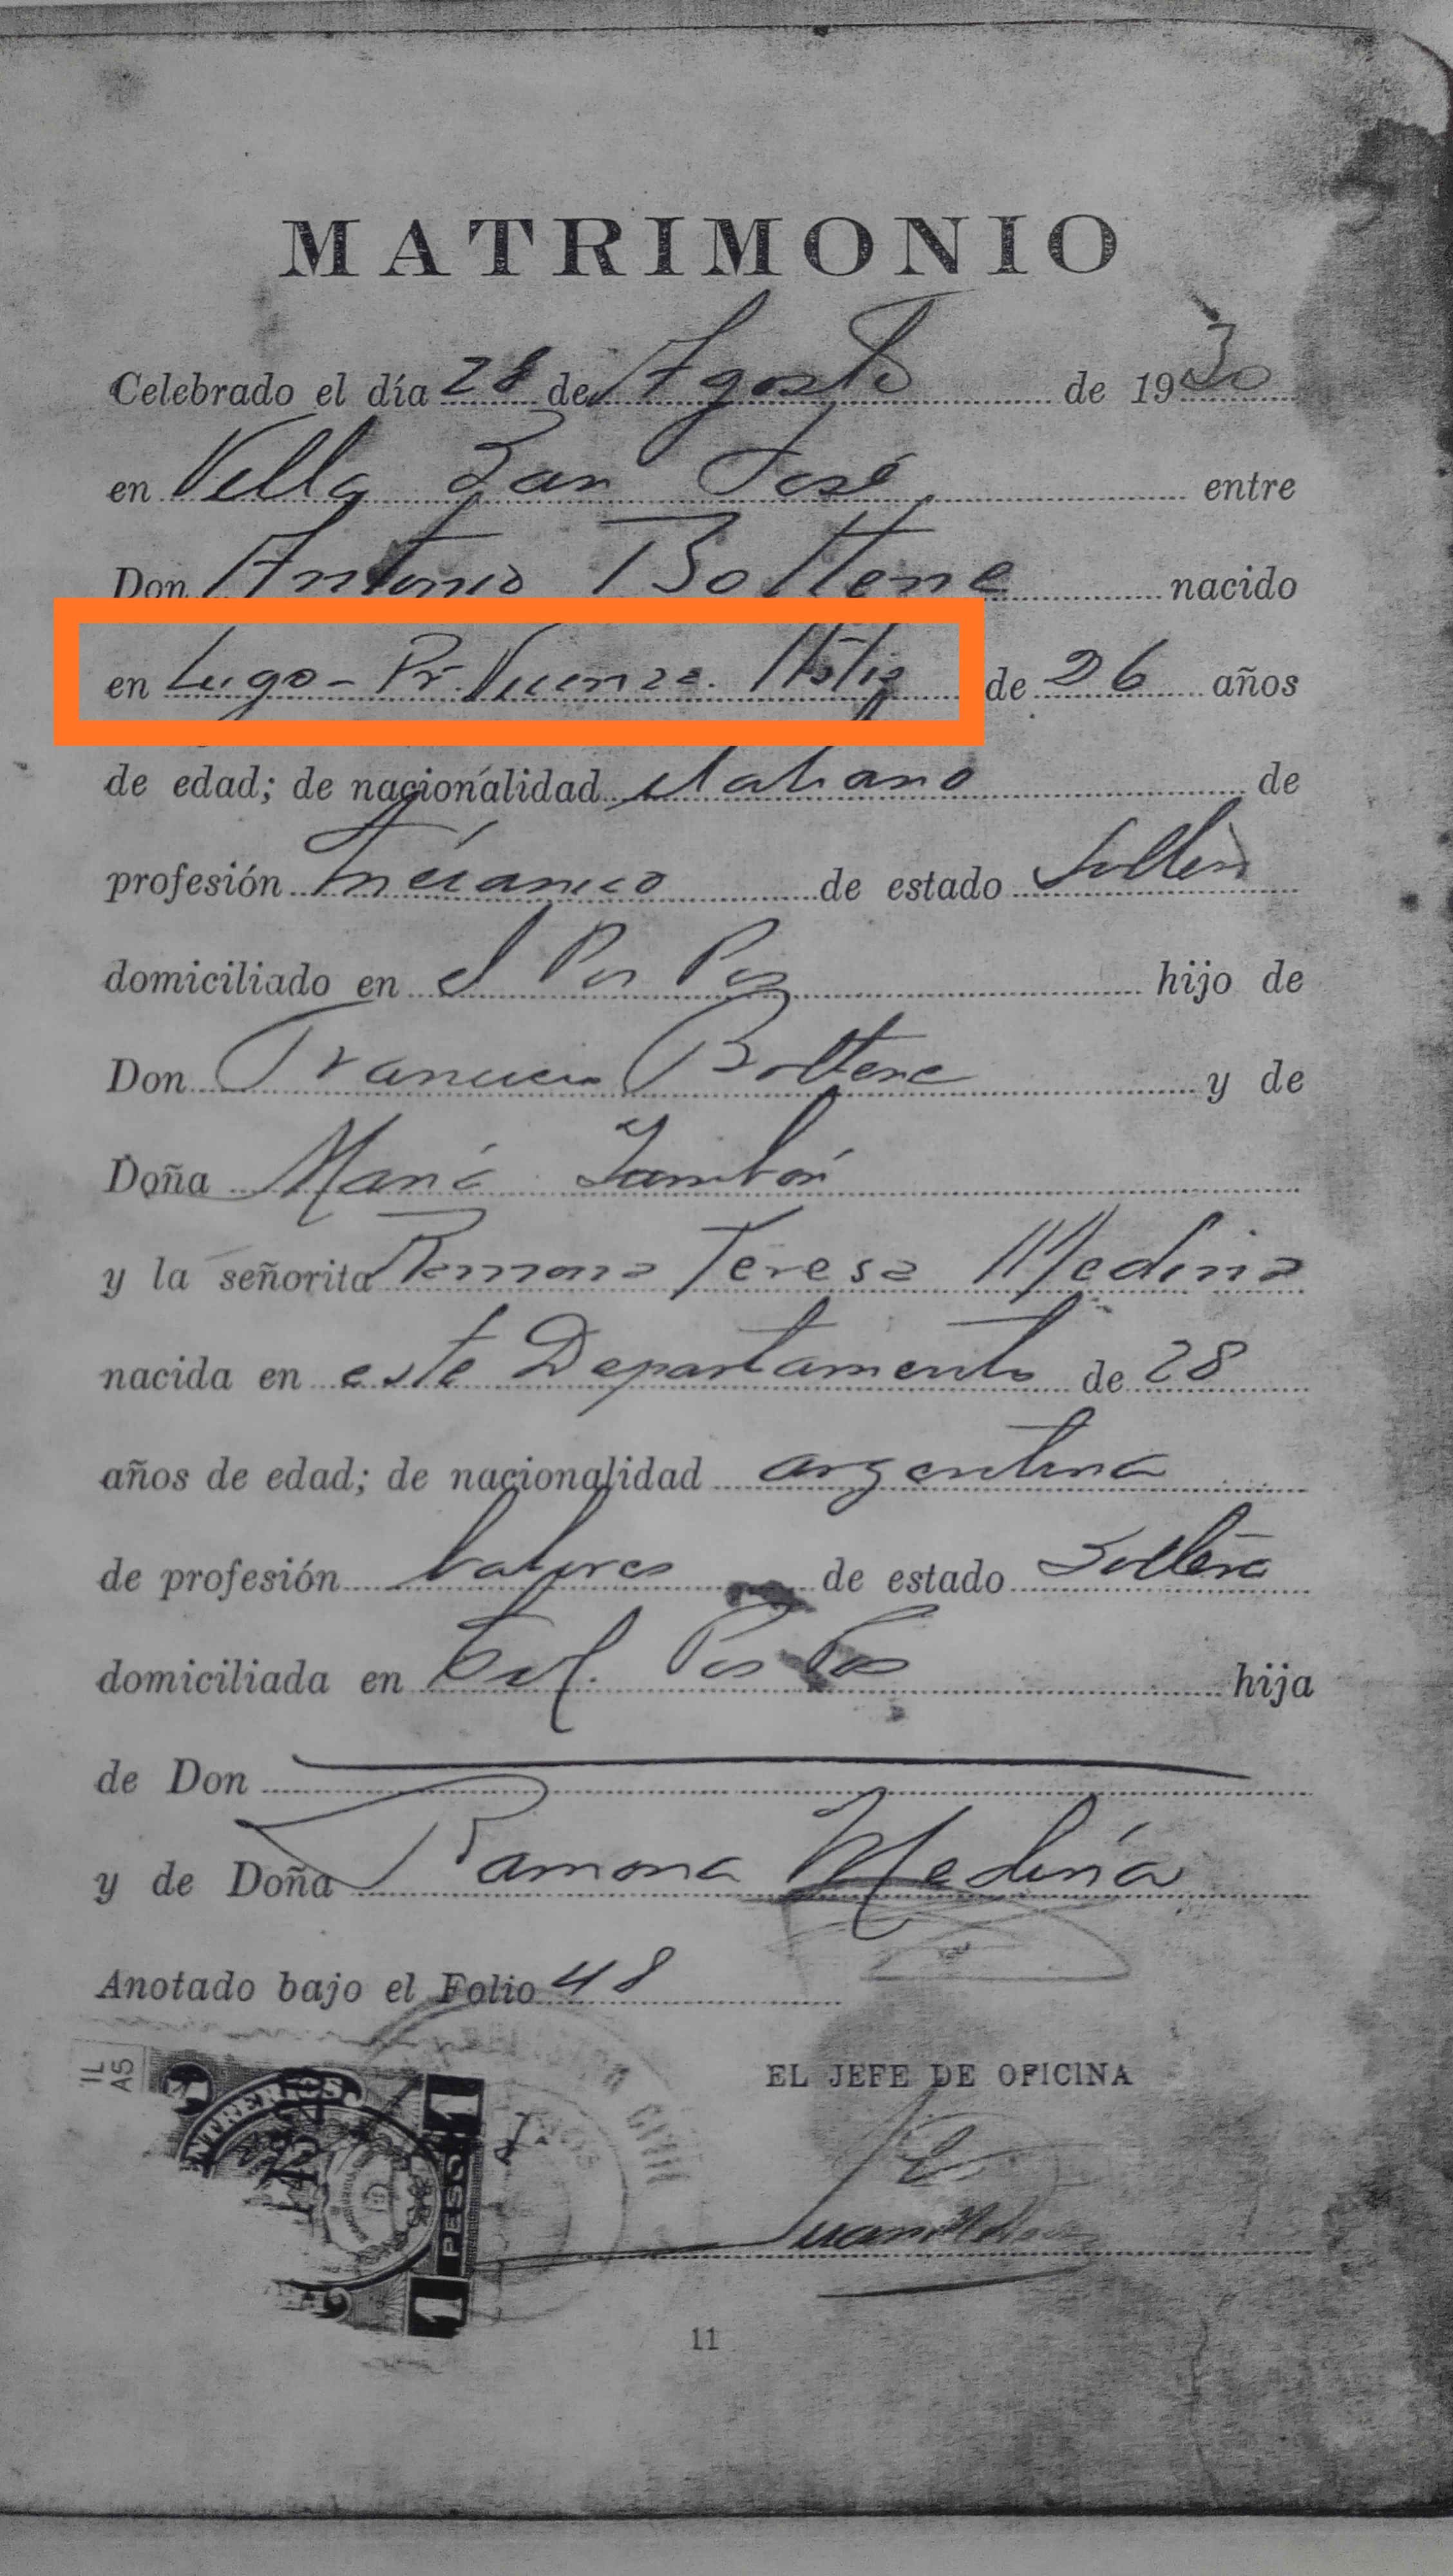 MATRIMONIO
Celebrado el día 28 de Agosto de 1930
en Villa San José entre
Don Antonio Bottene nacido
en Lugo - Pr. Vicenza. Italia de 26 años
de edad; de nacionalidad italiano de
profesión mecánico de estado Soltero
domiciliado en el Pos Pos hijo de
Don Francisco Bottene y de
Doña María Zambón
y la señorita Ramona Teresa Medina
nacida en este Departamento de 28
años de edad; de nacionalidad argentina
de profesión labores de estado Soltera
domiciliada en Pos Pos hija
de Don
y de Doña Ramona Medina
Anotado bajo el Folio 48
EL JEFE DE OFICINA
ENTRE RIOS
1
PESO
1
Juan
11